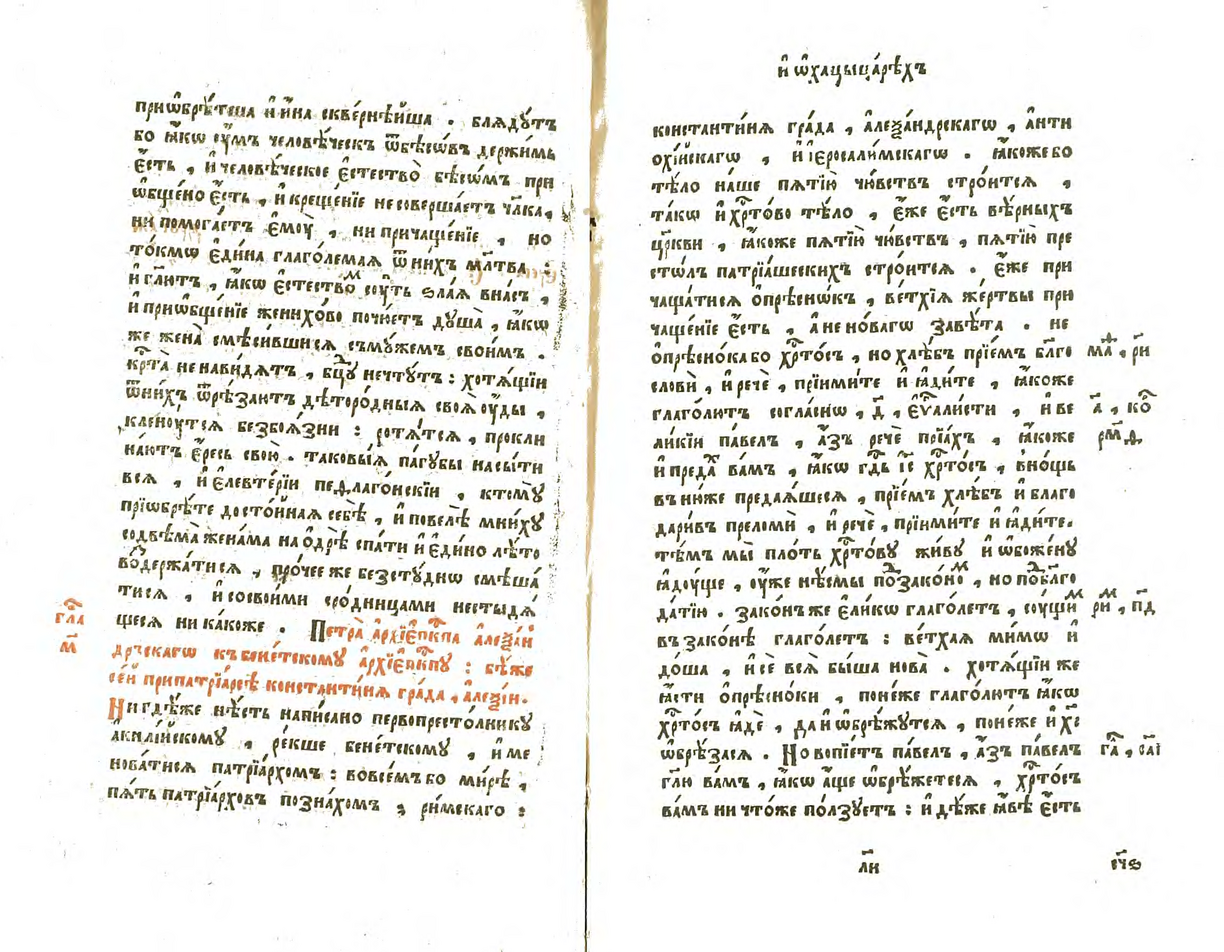 приѡбрѣтша и҆ и҆на скве́рнѣйша . блядꙋ́тъ
бо ꙗ҆́кѡ оу҆́мъ человѣ́ческъ ѿбѣсѡ́въ держи́мь
є҆́сть , и҆ человѣ́ческое є҆стество̀ бѣсѡ́мъ при
ѡ҆бще́но є҆́сть , и҆ креще́нїе несоверша́етъ чл҃ка,
ни помога́етъ є҆моу̀ , ни причаще́нїе , но
то́кмѡ є҆ди́на глаго́лемая ѿ ни́хъ мл҃тва :
и҆ гл҃итъ , ꙗ҆́кѡ є҆стествоⷨ соу́ть ѕла́я вна́съ ,
и҆ приѡбще́нїе женихо́во почю́етъ дꙋша̀ , ꙗ҆́кѡ
же жена̀ смѣси́вшися съмꙋ́жемъ свои́мъ .
крⷭ҇та̀ ненави́дятъ , бц҃ꙋ нечтꙋ́тъ : хотѧ́щїи
ѿни́хъ ѿрѣ́заютъ дѣторо́дныя своѧ̀ оу҆́ды ,
кленоу́тся безбоя́зни : ротѧ́тся , прокли
на́ютъ є҆́ресь свою̀ . таковы́я па́гꙋбы насы́ти
вся , и҆ є҆левте́рїи пефлаго́нскїи , ктомꙋ̀
прїѡбрѣ́те досто́йная себѣ̀ , и҆ повелѣ̀ мни́хꙋ
содвѣма̀ жена́ма на ѻ҆дрѣ̀ спа́ти и҆ є҆ди́но лѣ́то
во́держа́тися , про́чее же безстꙋ́днѡ смѣша́
тися , и҆ со свои́ми сро́дницами нестыдѧ́
щеся ника́коже . Петра̀ а҆рхїєпⷭ҇кпа а҆леѯа́н
дръскагѡ къ бене́тскомꙋ а҆рхїєпⷭ҇кпꙋ : бѣ́же
се́й припатрїа́рсѣ константи́ня гра́да , а҆леѯі́и.
гла҃
м҃
Нигдѣ́же нѣ́сть напи́сано первопресто́лникꙋ
а҆килі́йскомꙋ , ре́кше бене́тскомꙋ , и҆ме
нова́тися патрїа́рхомъ : во все́мъ бо ми́рѣ ,
пѧ́ть патрїа́рховъ позна́хомъ , ри́мскаго :
и҆ ѡ҆хацыца́рѣхъ
константи́ня гра́да , а҆леѯа́ндрскагѡ , а҆нти
охі́йскагѡ , и҆ і҆еросали́мскагѡ . ꙗ҆́коже бо
тѣ́ло на́ше пѧтїю̀ чю́вствъ стро́ится ,
та́кѡ и҆ хрⷭ҇то́во тѣ́ло , є҆́же є҆́сть вѣ́рныхъ
цр҃кви , ꙗ҆́коже пѧтїю̀ чю́вствъ , пѧтїю̀ пре
сто́лъ патрїа́шескихъ стро́ится . є҆́же при
чаща́тися ѻ҆прѣсно́къ , ве́тхїя же́ртвы при
чаще́нїе є҆́сть , а҆ не но́вагѡ завѣ́та . не
ѻ҆прѣсно́ка бо хрⷭ҇то́съ , но хлѣ́бъ прїе́мъ бл҃го
мѳ҃ , рн҃и
словѝ , и҆ речѐ , прїими́те и҆ ꙗ҆ди́те , ꙗ҆́коже
глаго́литъ согла́снѡ , д҃ , є҆ѵⷢ҇али́сти , и҆ ве
а҃ , коⷬ҇
ли́кїи па́велъ , а҆́зъ речѐ прїѧ́хъ , ꙗ҆́коже
рм҃ѳ
и҆ преда́ⷯ ва́мъ , ꙗ҆́кѡ гд҇ь і҆с҃ хрⷭ҇то́съ , в нощь
въ ню́же предая́шеся , прїе́мъ хлѣ́бъ и҆ благо
дари́въ преломѝ , и҆ речѐ , прїими́те и҆ ꙗ҆ди́те.
тѣ́мъ мы̀ пло́ть хрⷭ҇то́вꙋ жи́вꙋ и҆ ѡ҆бо́женꙋ
ꙗ҆доу́ще , оу҆́же нѣ́смы поⷣзако́ноⷨ , но поⷣбл҃го
да́тїю . зако́нъ же є҆ли́кѡ глаго́летъ , соу́щиⷨ
риⷨ , п҃д
въ зако́нѣ глаго́летъ : ве́тхая ми́мѡ и҆
до́ша , и҆ сѐ всѧ̀ бы́ша нова̀ . хотѧ́щїи же
ꙗ҆́сти ѻ҆прѣсно́ки , поне́же глаго́литъ ꙗ҆́кѡ
хрⷭ҇то́съ ꙗ҆дѐ , да и҆ ѡ҆брѣ́жꙋтся , поне́же и҆ хс҃
ѡ҆брѣ́зася . Но вопїе́тъ па́велъ , а҆́зъ па́велъ
га҃ , саі҃
гл҃ю ва́мъ , ꙗ҆́кѡ а҆́ще ѡ҆брѣ́жетеся , хрⷭ҇то́съ
ва́мъ ничто́же по́лзꙋетъ : и҆дѣ́же ꙗ҆́вѣ є҆́сть
ли
сч҃ѕ